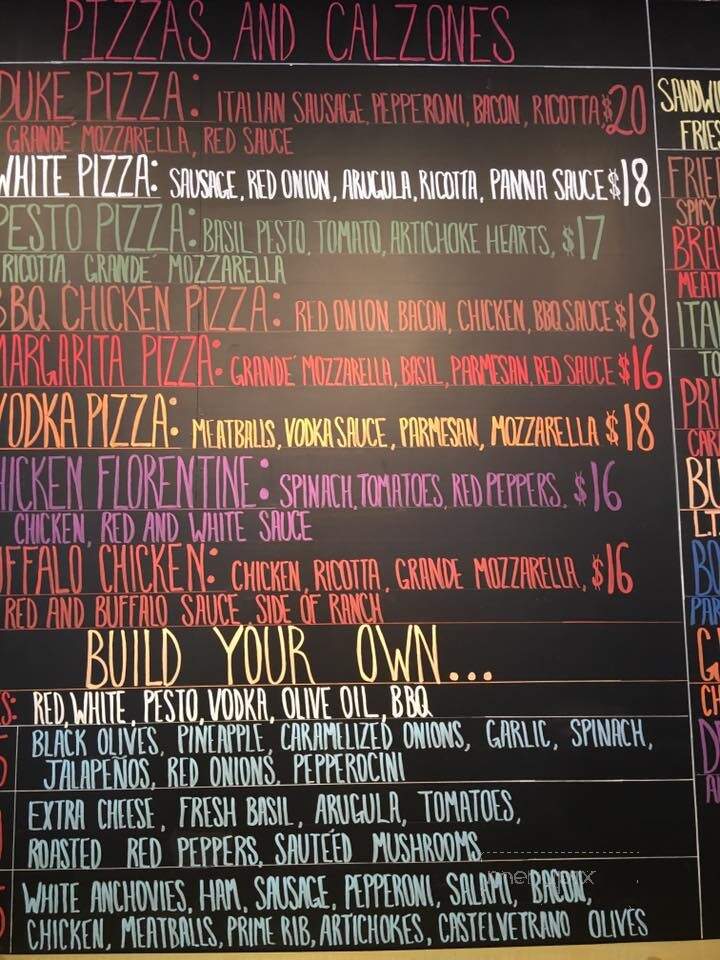 PIZZAS AND CALZONES
DUKE PIZZA: ITALIAN SAUSAGE, PEPPERONI, BACON, RICOTTA, $20
GRANDE MOZZARELLA, RED SAUCE
WHITE PIZZA: SAUSAGE, RED ONION, ARUGULA, RICOTTA, PANNA SAUCE $18
PESTO PIZZA: BASIL PESTO, TOMATO, ARTICHOKE HEARTS, $17
RICOTTA, GRANDE MOZZARELLA
BBQ CHICKEN PIZZA: RED ONION, BACON, CHICKEN, BBQ SAUCE $18
MARGARITA PIZZA: GRANDE MOZZARELLA, BASIL, PARMESAN, RED SAUCE $16
VODKA PIZZA: MEATBALLS, VODKA SAUCE, PARMESAN, MOZZARELLA $18
HICKEN FLORENTINE: SPINACH, TOMATOES, RED PEPPERS, $16
CHICKEN, RED AND WHITE SAUCE
UFFALO CHICKEN: CHICKEN, RICOTTA, GRANDE MOZZARELLA, $16
RED AND BUFFALO SAUCE, SIDE OF RANCH
BUILD YOUR OWN...
S: RED, WHITE, PESTO, VODKA, OLIVE OIL, BBQ
BLACK OLIVES, PINEAPPLE, CARAMELIZED ONIONS, GARLIC, SPINACH,
JALAPEÑOS, RED ONIONS, PEPPEROCINI
EXTRA CHEESE, FRESH BASIL, ARUGULA, TOMATOES,
ROASTED RED PEPPERS, SAUTÉED MUSHROOMS
WHITE ANCHOVIES, HAM, SAUSAGE, PEPPERONI, SALAMI, BACON,
CHICKEN, MEATBALLS, PRIME RIB, ARTICHOKES, CASTELVETRANO OLIVES
SANDWI
FRIES
FRIE
SPICY
BRA
MEAT
ITA
TO
PRI
CAR
BU
L.T.
BO
PAR
C
CH